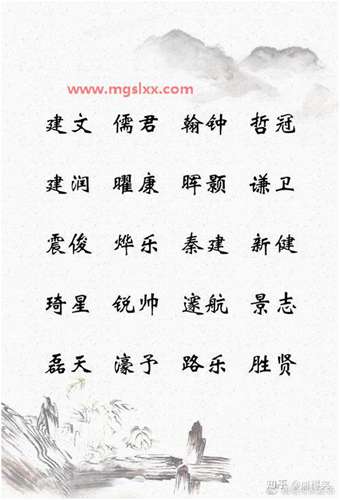 www.mgslxx.com
建文 儒君 翰钟 哲冠
建润 曜康 晖颢 谦卫
震俊 烨乐 秦建 新健
琦星 锐帅 邃航 景志
磊天 濠予 路乐 胜贤
知乎